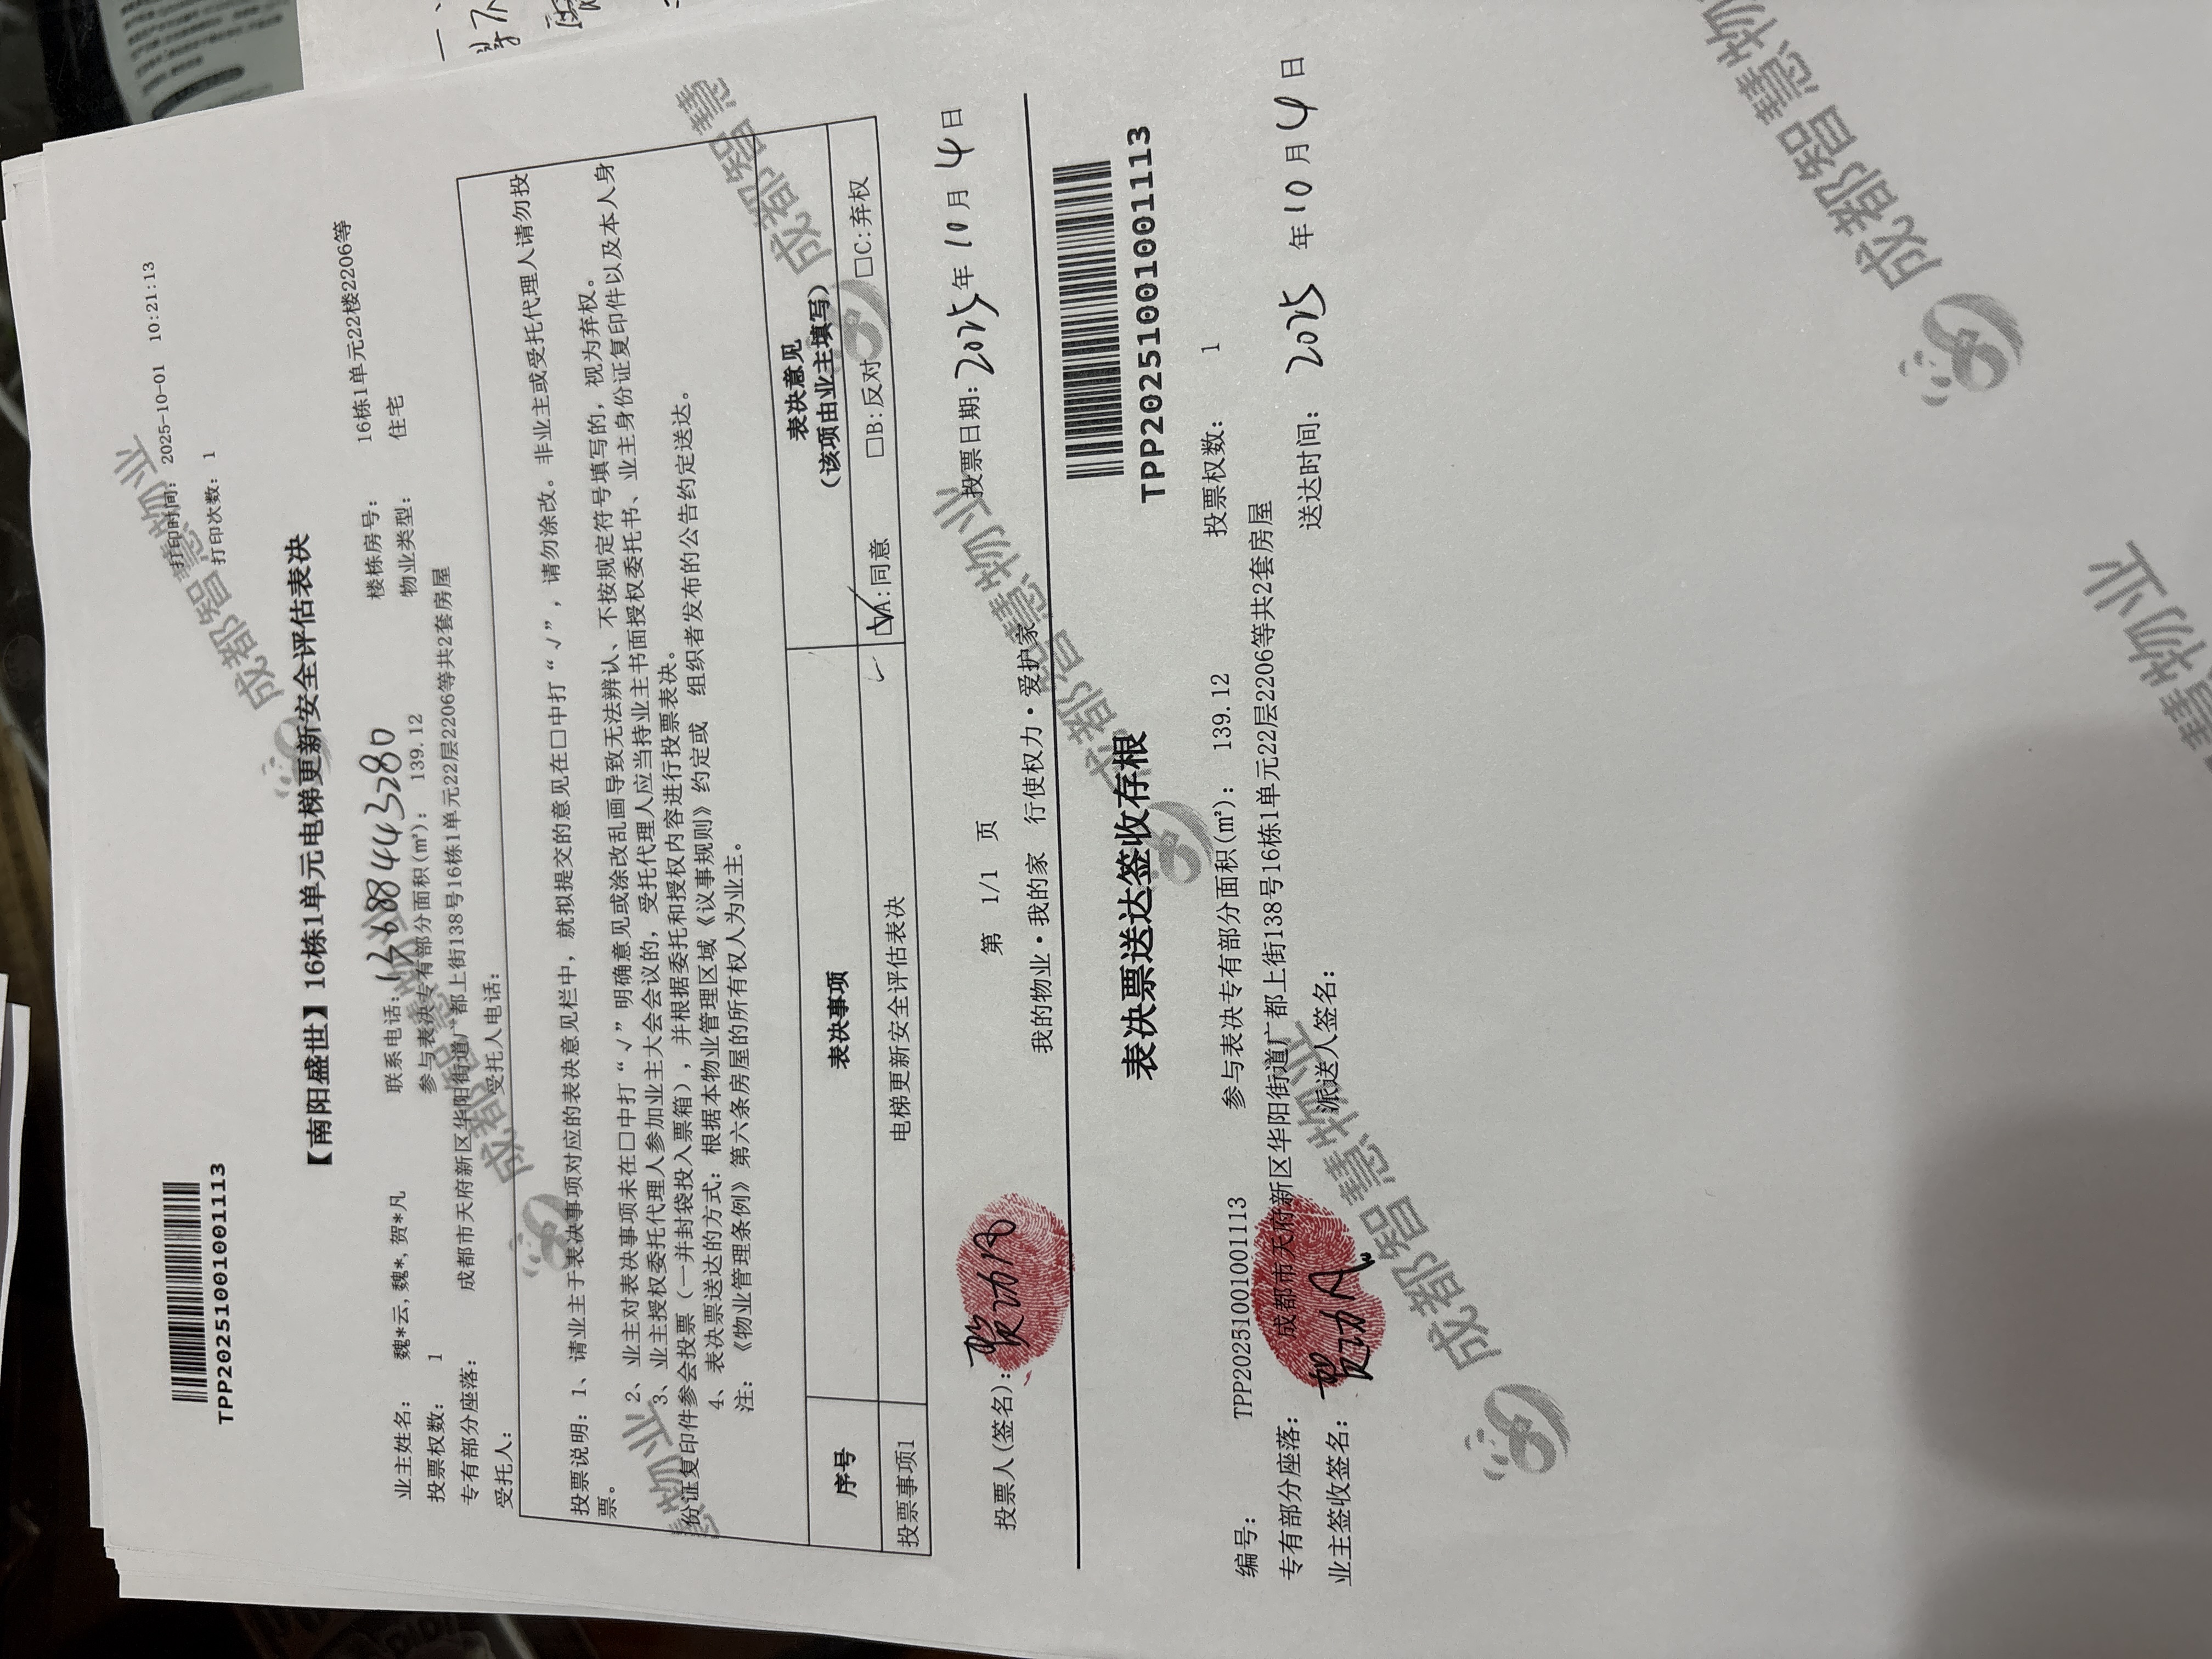 TPP20251001001113
打印时间: 2025-10-01 10:21:13
打印次数: 1
【南阳盛世】16栋1单元电梯更新安全评估表决
业主姓名: 魏*云,魏*,贺*凡 联系电话: 13688443280 楼栋房号: 16栋1单元22楼2206等
投票权数: 1 参与表决专有部分面积(㎡): 139.12 物业类型: 住宅
专有部分座落: 成都市天府新区华阳街道广都上街138号16栋1单元22层2206等共2套房屋
受托人: 受托人电话:
投票说明: 1、请业主于表决事项对应的表决意见栏中，就拟提交的意见在□中打“√”，请勿涂改。非业主或受托代理人请勿投
票。
2、业主对表决事项未在□中打“√”明确意见或涂改乱画导致无法辨认、不按规定符号填写的，视为弃权。
3、业主授权委托代理人参加业主大会会议的，受托代理人应当持业主书面授权委托书、业主身份证复印件以及本人身
份证复印件参会投票（一并封袋投入票箱），并根据委托和授权内容进行投票表决。
4、表决票送达的方式：根据本物业管理区域《议事规则》约定或 组织者发布的公告约定送达。
注：《物业管理条例》第六条房屋的所有权人为业主。
序号 表决事项 表决意见
（该项由业主填写）
投票事项1 电梯更新安全评估表决 ✓ ☑A:同意 □B:反对 □C:弃权
投票人(签名): 贺 凡 第 1/1 页 投票日期: 2025年10月4日
我的物业·我的家 行使权力·爱护家
表决票送达签收存根
TPP20251001001113
编号: TPP20251001001113 参与表决专有部分面积(㎡): 139.12 投票权数: 1
专有部分座落: 成都市天府新区华阳街道广都上街138号16栋1单元22层2206等共2套房屋
业主签收签名: 贺 凡 派送人签名: 送达时间: 2025年10月4日
成都智慧物业
成都智慧物业
慧物业
成都智慧
成都智慧物业
成都智慧物业
成都智慧物
慧物业